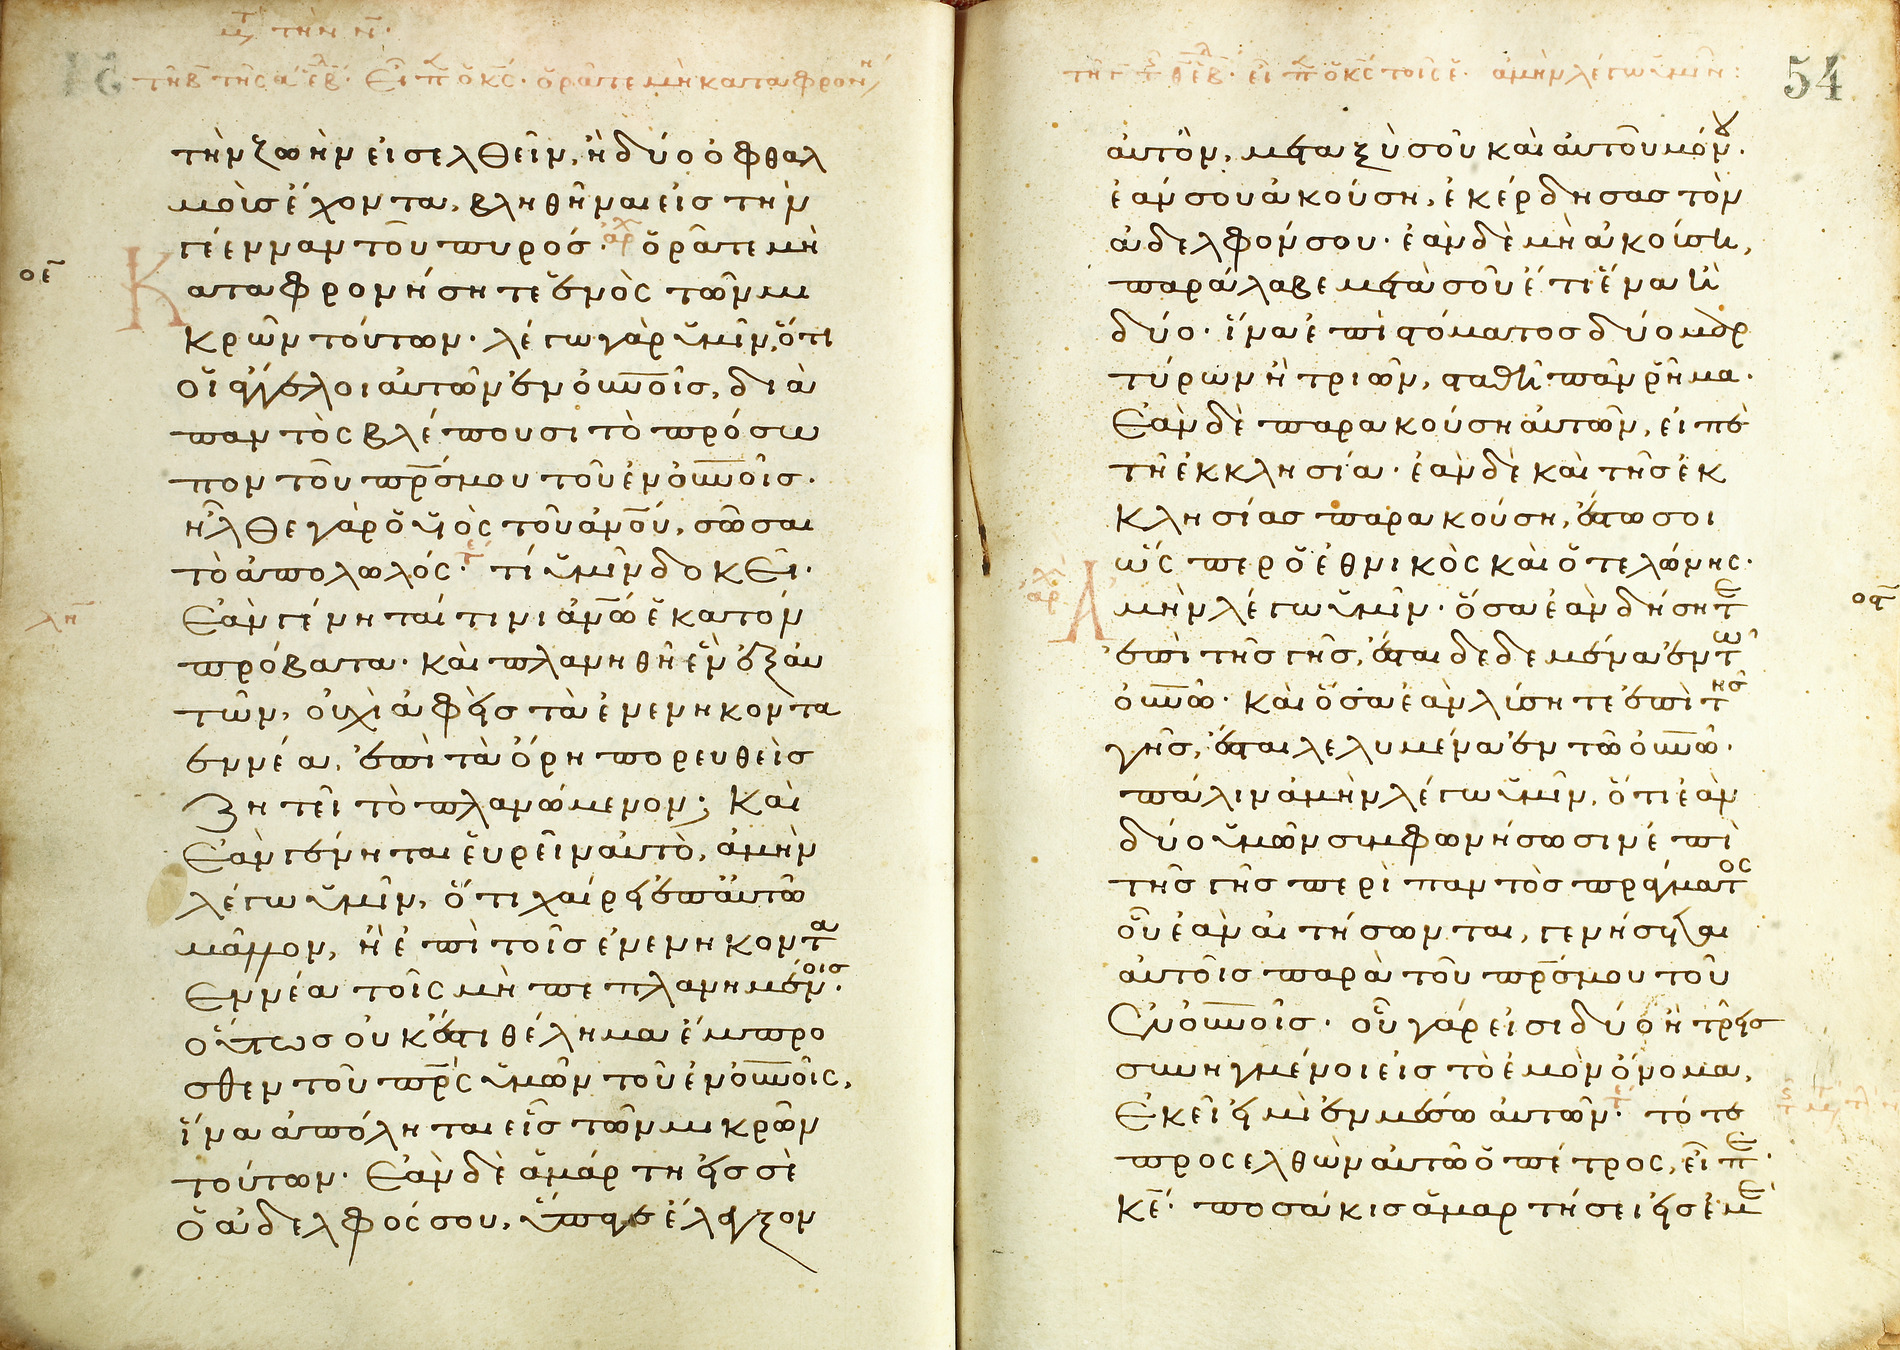 τῇ β τῆς α ἑβ. εἶπ ὁ κς. ὁρᾶτε μὴ καταφρον
τὴν ζωὴν εἰσελθεῖν, ἢ δύο ὀφθαλ
μοὺς ἔχοντα, βληθῆναι εἰς τὴν
γέενναν τοῦ πυρός. ἀρχ ὁρᾶτε μὴ
οε
Καταφρονήσητε ἑνὸς τῶν μι
κρῶν τούτων. λέγω γὰρ ὑμῖν, ὅτι
οἱ ἄγγελοι αὐτῶν ἐν οὐνοῖς, διὰ
παντὸς βλέπουσι τὸ πρόσω
πον τοῦ πρσ μου τοῦ ἐν οὐνοῖς.
ἦλθε γὰρ ὁ υἱὸς τοῦ ἀνου, σῶσαι
τὸ ἀπολωλός. τί ὑμῖν δοκεῖ.
λη
Ἐὰν γένηταί τινι ἀνω ἑκατὸν
πρόβατα. καὶ πλανηθῇ ἓν ἐξ αὐ
τῶν, οὐχὶ ἀφεὶς τὰ ἐνενηκοντα
ἐννέα, ἐπὶ τὰ ὄρη πορευθεὶς
ζητεῖ τὸ πλανώμενον; Καὶ
Ἐὰν γένηται εὑρεῖν αὐτὸ, ἀμὴν
λέγω ὑμῖν, ὅτι χαίρει ἐπ αὐτῶ
μᾶλλον, ἢ ἐπὶ τοῖς ἐνενηκοντα
Ἐννέα τοῖς μὴ πεπλανημένοις.
οὕτως οὐκ ἔστι θέλημα ἔμπρο
σθεν τοῦ πρς ὑμῶν τοῦ ἐν οὐνοῖς,
ἵνα ἀπόληται εἷς τῶν μικρῶν
τούτων. Ἐὰν δὲ ἁμάρτη εἰς σὲ
ὁ ἀδελφός σου, ὕπαγε ἔλεγξον
54
ἀμὴν λέγω ὑμῖν:
αὐτὸν, μεταξὺ σοῦ καὶ αὐτοῦ μόνου.
ἐάν σου ἀκούση, ἐκέρδησας τὸν
ἀδελφόν σου. ἐὰν δὲ μὴ ἀκούση,
παράλαβε μετὰ σοῦ ἔτι ἕνα ἢ
δύο. ἵνα ἐπὶ στόματος δύο μαρ
τύρων ἢ τριῶν, σταθῆ πᾶν ῥῆμα.
Ἐὰν δὲ παρακούση αὐτῶν, εἰπὲ
τῆ ἐκκλησία. ἐὰν δὲ καὶ τῆς ἐκ
κλησίας παρακούση, ἔστω σοι
ὥς περ ὁ ἐθνικὸς καὶ ὁ τελώνης.
ἀρχ
Ἀμὴν λέγω ὑμῖν. ὅσα ἐὰν δήσητε
ἐπὶ τῆς γῆς, ἔσται δεδεμένα ἐν τῶ
οὐνῶ. καὶ ὅσα ἐὰν λύσητε ἐπὶ τῆς
γῆς, ἔσται λελυμένα ἐν τῶ οὐνῶ.
πάλιν ἀμὴν λέγω ὑμῖν, ὅτι ἐὰν
δύο ὑμῶν συμφωνήσωσιν ἐπὶ
τῆς γῆς περὶ παντὸς πράγματος
οὗ ἐὰν αἰτήσωνται, γενήσεται
αὐτοῖς παρὰ τοῦ πρσ μου τοῦ
Ἐν οὐνοῖς. οὗ γάρ εἰσι δύο ἢ τρεῖς
συνηγμένοι εἰς τὸ ἐμὸν ὄνομα,
Ἐκεῖ εἰμὶ ἐν μέσω αὐτῶν. τότε
προσελθὼν αὐτῶ ὁ πέτρος, εἶπε.
κε. ποσάκις ἁμαρτήσει εἰς ἐμὲ